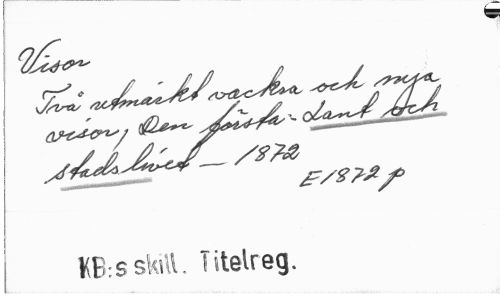 Visor
Två utmärkt vackra och nya
visor, Den första: Lant och
stadslivet — 1872
E1872 p
KB:s skill. Titelreg.